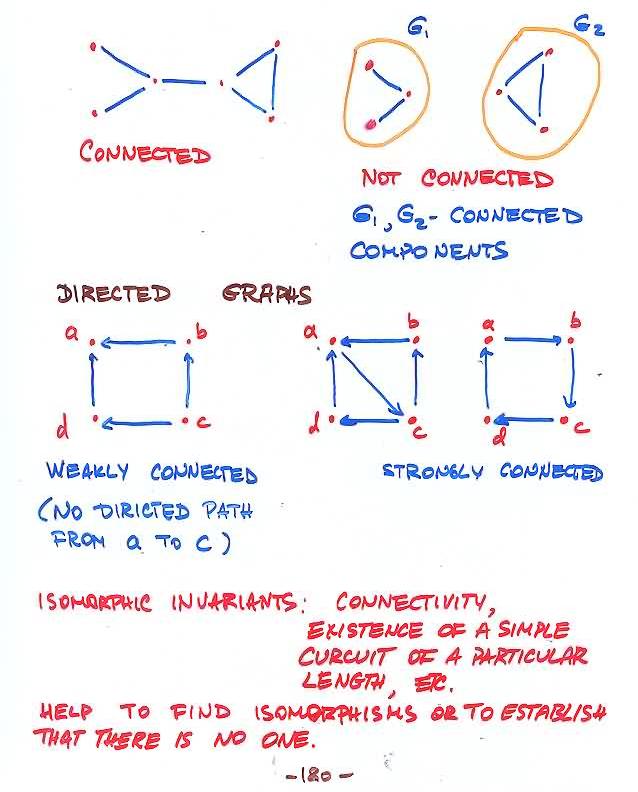 G1 G2
CONNECTED
NOT CONNECTED
G1, G2 - CONNECTED
COMPONENTS
DIRECTED GRAPHS
a b a b a b
d c d c d c
WEAKLY CONNECTED STRONGLY CONNECTED
(NO DIRICTED PATH
FROM a TO c)
ISOMORPHIC INVARIANTS: CONNECTIVITY,
EXISTENCE OF A SIMPLE
CURCUIT OF A PARTICULAR
LENGTH, ETC.
HELP TO FIND ISOMORPHISMS OR TO ESTABLISH
THAT THERE IS NO ONE.
-180-